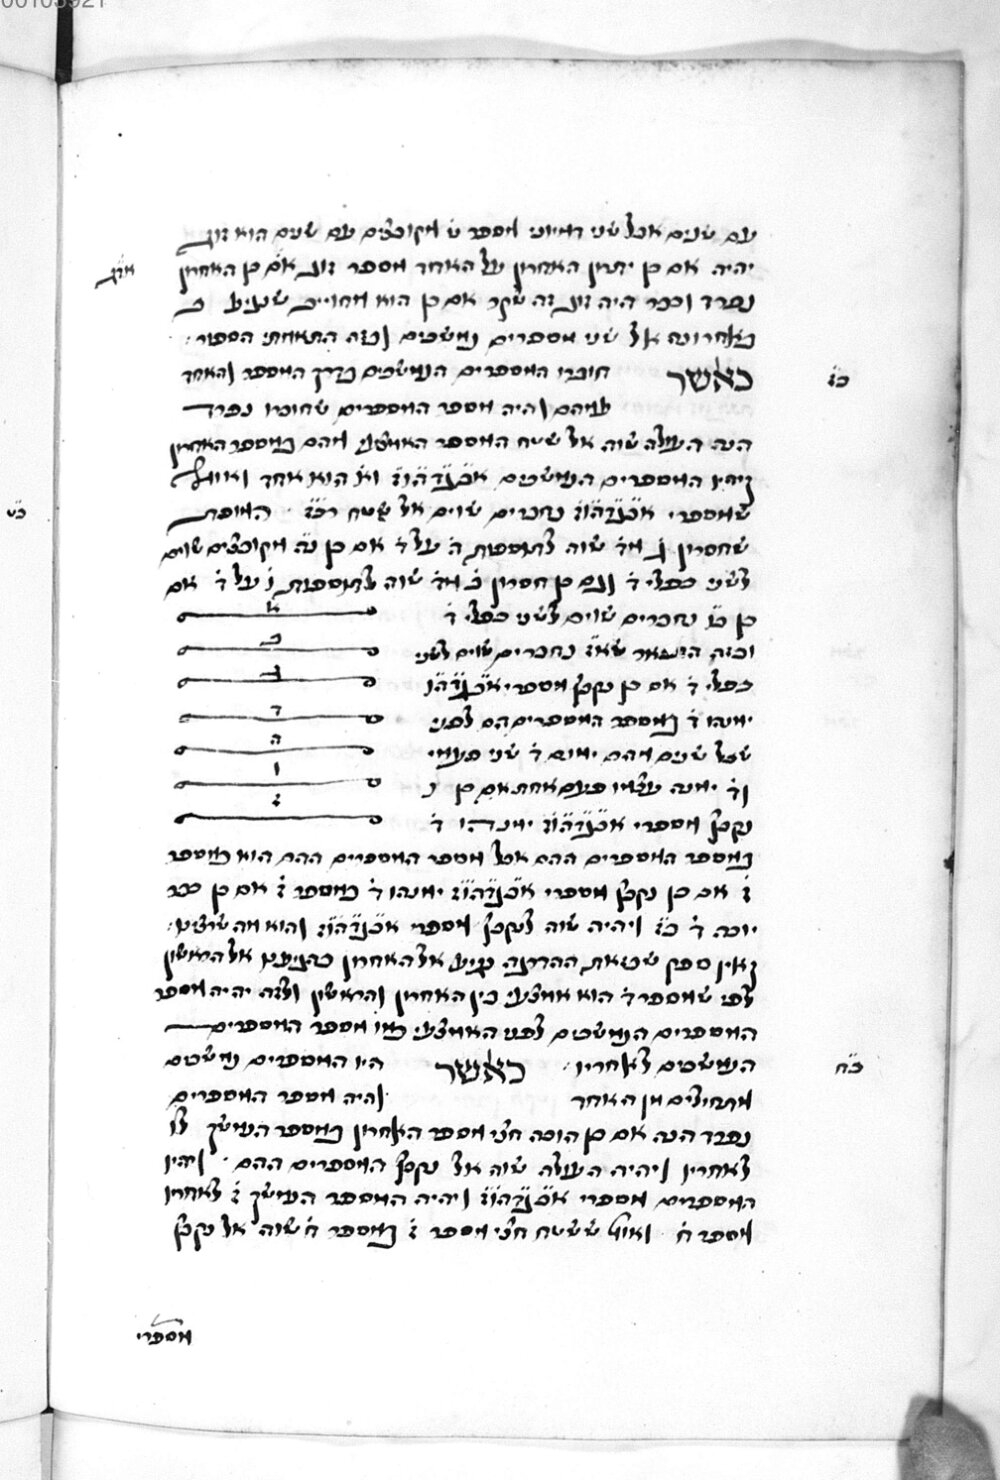 עם שנים אבל שני דמיוני מספר ט מקובצים עם שנים הוא זוג
יהיה אם כן יתרון האחרון על האחד מספר זוג אם כן האחרון
נפרד וכבר היה זוג זה שקר אם כן הוא מחוייב שנגיע ב
באחרונה אל שני מספרים נמשכים וכזה התאמתי הספור :
כאשר חוברו המספרים הנמשכים כדרך המספר והאחד
עמהם והיה מספר המספרים שחוברו נפרד
הנה העולה שוה אל שטח המספר האמצעי מהם במספר האחרון
ויהיו המספרים הנמשכים אבגדהוז וא הוא אחד ואומר
שמספרי אבגדהוז נחברים שוים אל שטח דבז . המופת
שחסרון ג מד שוה לתוספת ה על ד אם כן גה מקובצים שוים
לשני כפלי ד וגם כן חסרון ב מד שוה לתוספת ו על ד אם
כן בו נחברים שוים לשני כפלי ד
וכזה הנשאר שאז נחברים שוים לשני
כפלי ד אם כן נקבץ מספרי אבגדהוז
ימנהו ד במספר המספרים הם לפני
שכל שנים מהם ימנם ד שני פעמי
וד ימנה עצמו פעם אחת אם כן
נקבץ מספרי אבגדהוז ימנהו ד
במספר המספרים ההם אבל מספר המספרים ההם הוא במספר
ז אם כן נקבץ מספרי אבגדהוז ימנהו ד במספר ז אם כן כבר
יוכה ד בז ויהיה שוה לנקבץ מספרי אבגדהוז והוא מה שרצינו :
ואין ספק שבזאת ההדרגה נגיע אל האחרון בהגיענו אל הראשון
לפי שמספר ד הוא אמצעי בין האחרון והראשון ולזה יהיה מספר
המספרים הנמשכים לפני האמצעי כמו מספר המספרים
הנמשכים לאחריו : כאשר היו המספרים נמשכים
מתחילים מן האחד והיה מספר המספרים
נפרד הנה אם כן הוכה חצי מספר האחרון במספר הנמשך לו
לאחריו ויהיה העולה שוה אל נקבץ המספרים ההם . ויהיו
המספרים מספרי אבגדהוז ויהיה המספר הנמשך ז לאחריו
מספר ח . ואומר ששטח חצי מספר ז במספר ח שוה אל נקבץ
מספרי
א
ב
ג
ד
ה
ו
ז
כז
כח
כט